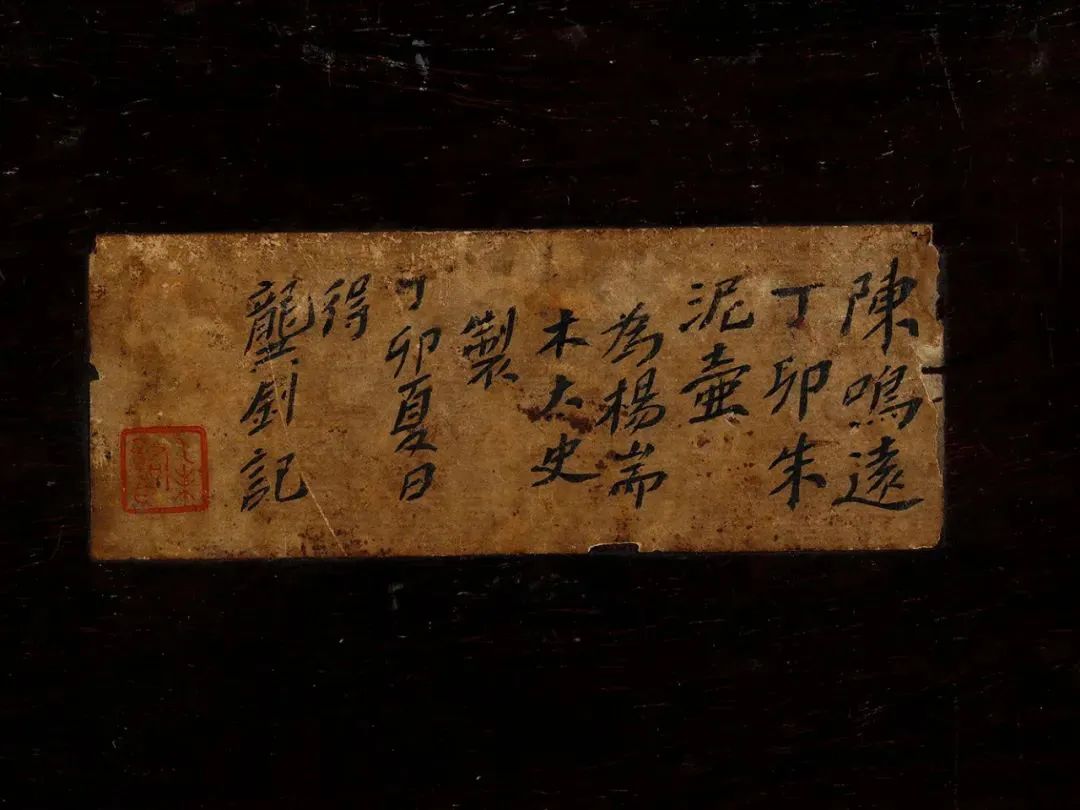 陳鳴遠
丁卯朱
泥壷
為楊耑
木太史
製
丁卯夏日
得
龔釗記